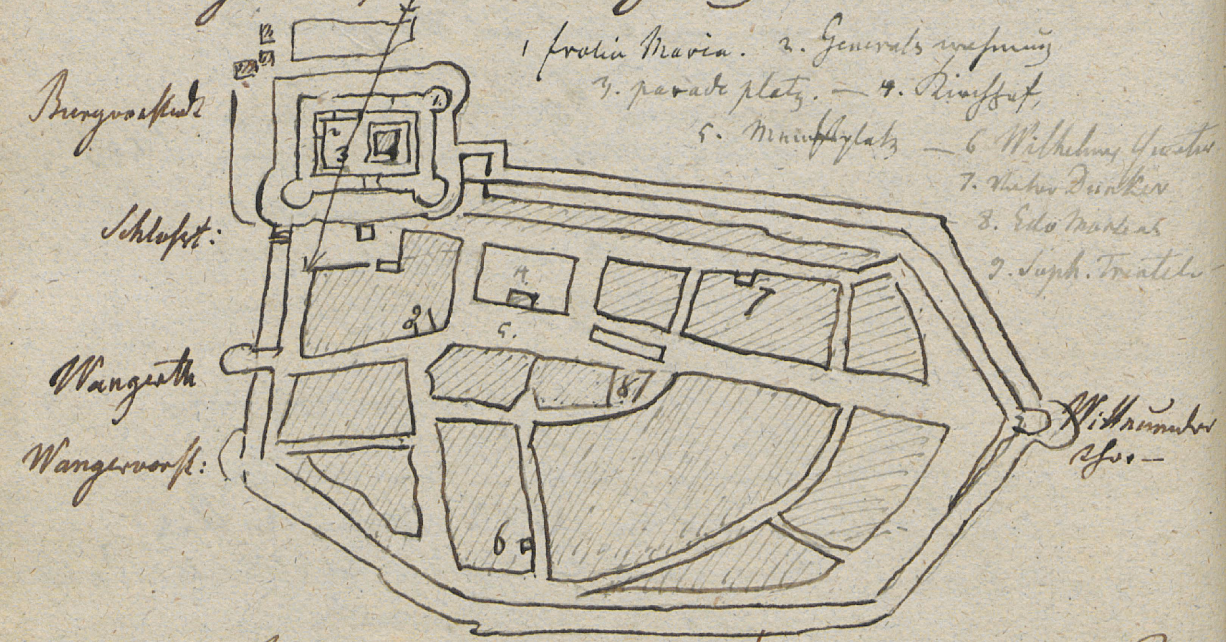 1 frolin Maria. 2. Generals wohnung
3. parade platz. — 4. Kirchhof,
5. platz — 6 Wilhelms
7. Dunker
8. Edo
9. Soph. Trentel
Burgvorstadt
Schlosst:
Wangerth
Wangervorst:
Wittmunder
thor—
2
3
4.
5.
2
7
8
6